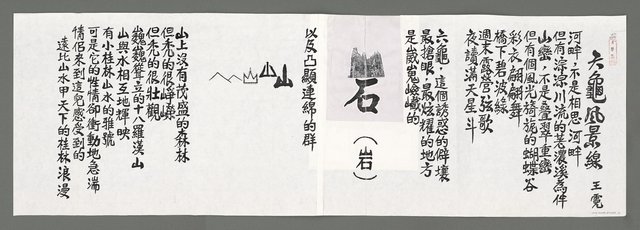 六龜風景線
王霓
河畔，不是相思河畔
但有淙淙川流的荖濃溪為伴
山巒，不是疊翠重巒
但有個風光旖旎的蝴蝶谷
彩衣翩翩舞
橋下碧波綠
週末露營弦歌
夜讀滿天星斗
六龜，這個誘惑的僻壤
最搶眼，最炫耀的地方
是崴嵬嶮巇的
石
（岩）
以及凸顯連綿的群
山
山
山上沒有茂盛的森林
但禿的很崢嶸
但禿的很壯觀
巍巍聳立的十八羅漢山
山與水相互地輝映
有小桂林山水的雅號
可是它的性情卻衝動地急湍
情侶來到這兒感受到的
遠比山水甲天下的桂林浪漫